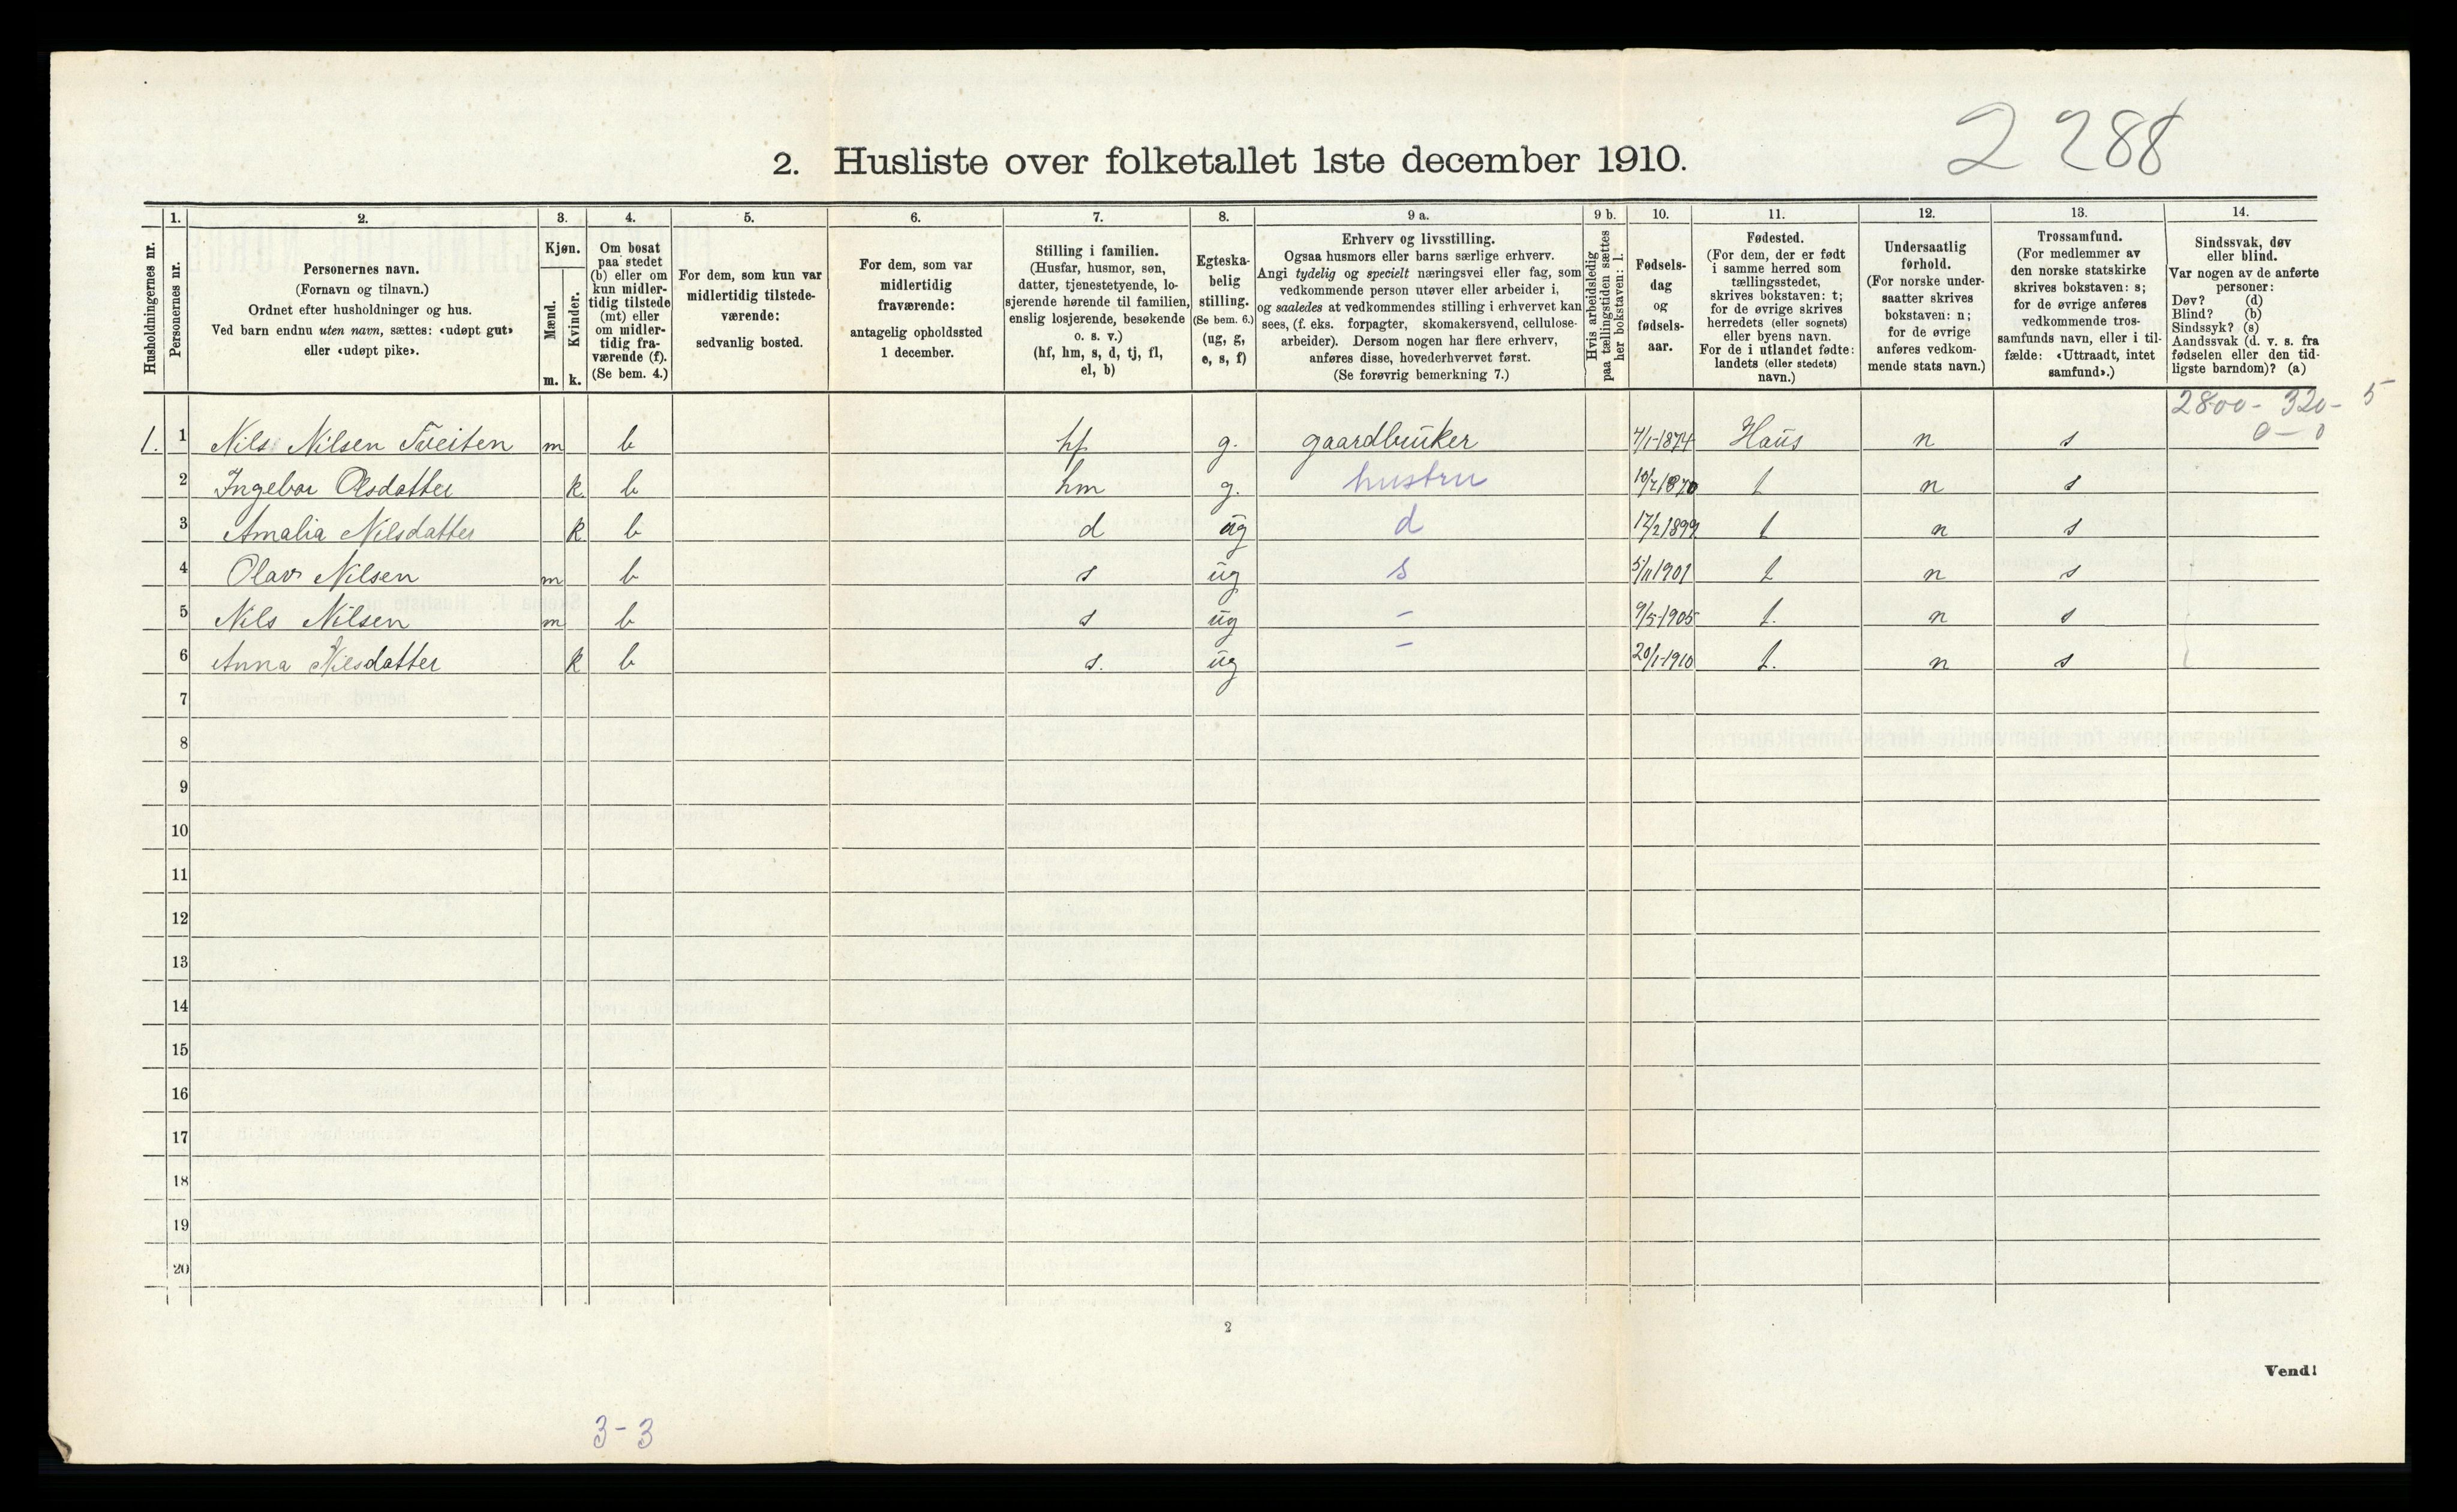 2288
2. Husliste over folketallet 1ste december 1910.
Husholdningernes nr.
1.
Personernes nr.
2.
Personernes navn.
(Fornavn og tilnavn.)
Ordnet efter husholdninger og hus.
Ved barn endnu uten navn, sættes: «udøpt gut»
eller «udøpt pike».
3.
Kjøn.
Mænd.
Kvinder.
m. k.
4.
Om bosat
paa stedet
(b) eller om
kun midler-
tidig tilstede
(mt) eller
om midler-
tidig fra-
værende (f).
(Se bem. 4.)
5.
For dem, som kun var
midlertidig tilstede-
værende:
sedvanlig bosted.
6.
For dem, som var
midlertidig
fraværende:
antagelig opholdssted
1 december.
7.
Stilling i familien.
(Husfar, husmor, søn,
datter, tjenestetyende, lo-
sjerende hørende til familien,
enslig losjerende, besøkende
o. s. v.)
(hf, hm, s, d, tj, fl,
el, b)
8.
Egteska-
belig
stilling.
(Se bem. 6.)
(ug, g,
e, s, f)
9 a.
Erhverv og livsstilling.
Ogsaa husmors eller barns særlige erhverv.
Angi tydelig og specielt næringsvei eller fag, som
vedkommende person utøver eller arbeider i,
og saaledes at vedkommendes stilling i erhvervet kan
sees, (f. eks. forpagter, skomakersvend, cellulose-
arbeider). Dersom nogen har flere erhverv,
anføres disse, hovederhvervet først.
(Se forøvrig bemerkning 7.)
9 b.
Hvis arbeidsledig
paa tællingstiden sættes
her bokstaven: l.
10.
Fødsels-
dag
og
fødsels-
aar.
11.
Fødested.
(For dem, der er født
i samme herred som
tællingsstedet,
skrives bokstaven: t;
for de øvrige skrives
herredets (eller sognets)
eller byens navn.
For de i utlandet fødte:
landets (eller stedets)
navn.)
12.
Undersaatlig
forhold.
(For norske under-
saatter skrives
bokstaven: n;
for de øvrige
anføres vedkom-
mende stats navn.)
13.
Trossamfund.
(For medlemmer av
den norske statskirke
skrives bokstaven: s;
for de øvrige anføres
vedkommende tros-
samfunds navn, eller i til-
fælde: «Uttraadt, intet
samfund».)
14.
Sindssvak, døv
eller blind.
Var nogen av de anførte
personer:
Døv? (d)
Blind? (b)
Sindssyk? (s)
Aandssvak (d. v. s. fra
fødselen eller den tid-
ligste barndom)? (a)
2800 - 320 - 5
0 - 0
1. 1 Nils Nilsen Tveiten m b hf g. gaardbruker 4/1-1874 Haus n s
2 Ingebor Olsdatter k b hm g. hustru 10/7 1870 t n s
3 Amalia Nilsdatter k b d ug d 17/2 1899 t n s
4 Olav Nilsen m b s ug s 5/11 1901 t n s
5 Nils Nilsen m b s ug - 9/5-1905 t. n s
6 Anna Nilsdatter k b s. ug - 20/1-1910 t. n s
7
8
9
10
11
12
13
14
15
16
17
18
19
20
2
Vend!
3-3